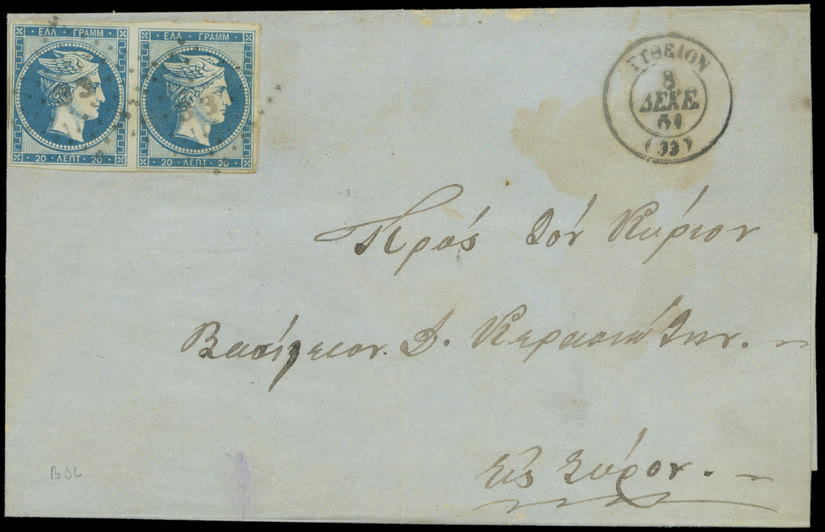 ΕΛΛ ΓΡΑΜΜ ΕΛΛ ΓΡΑΜΜ
20 ΛΕΠΤ 20 20 ΛΕΠΤ 20
33
ΓΥΘΕΙΟΝ
8
ΔΕΚΕ.
61
(33)
Πρὸς τὸν Κύριον
Βασίλειον Δ.
εἰς Σύρον.